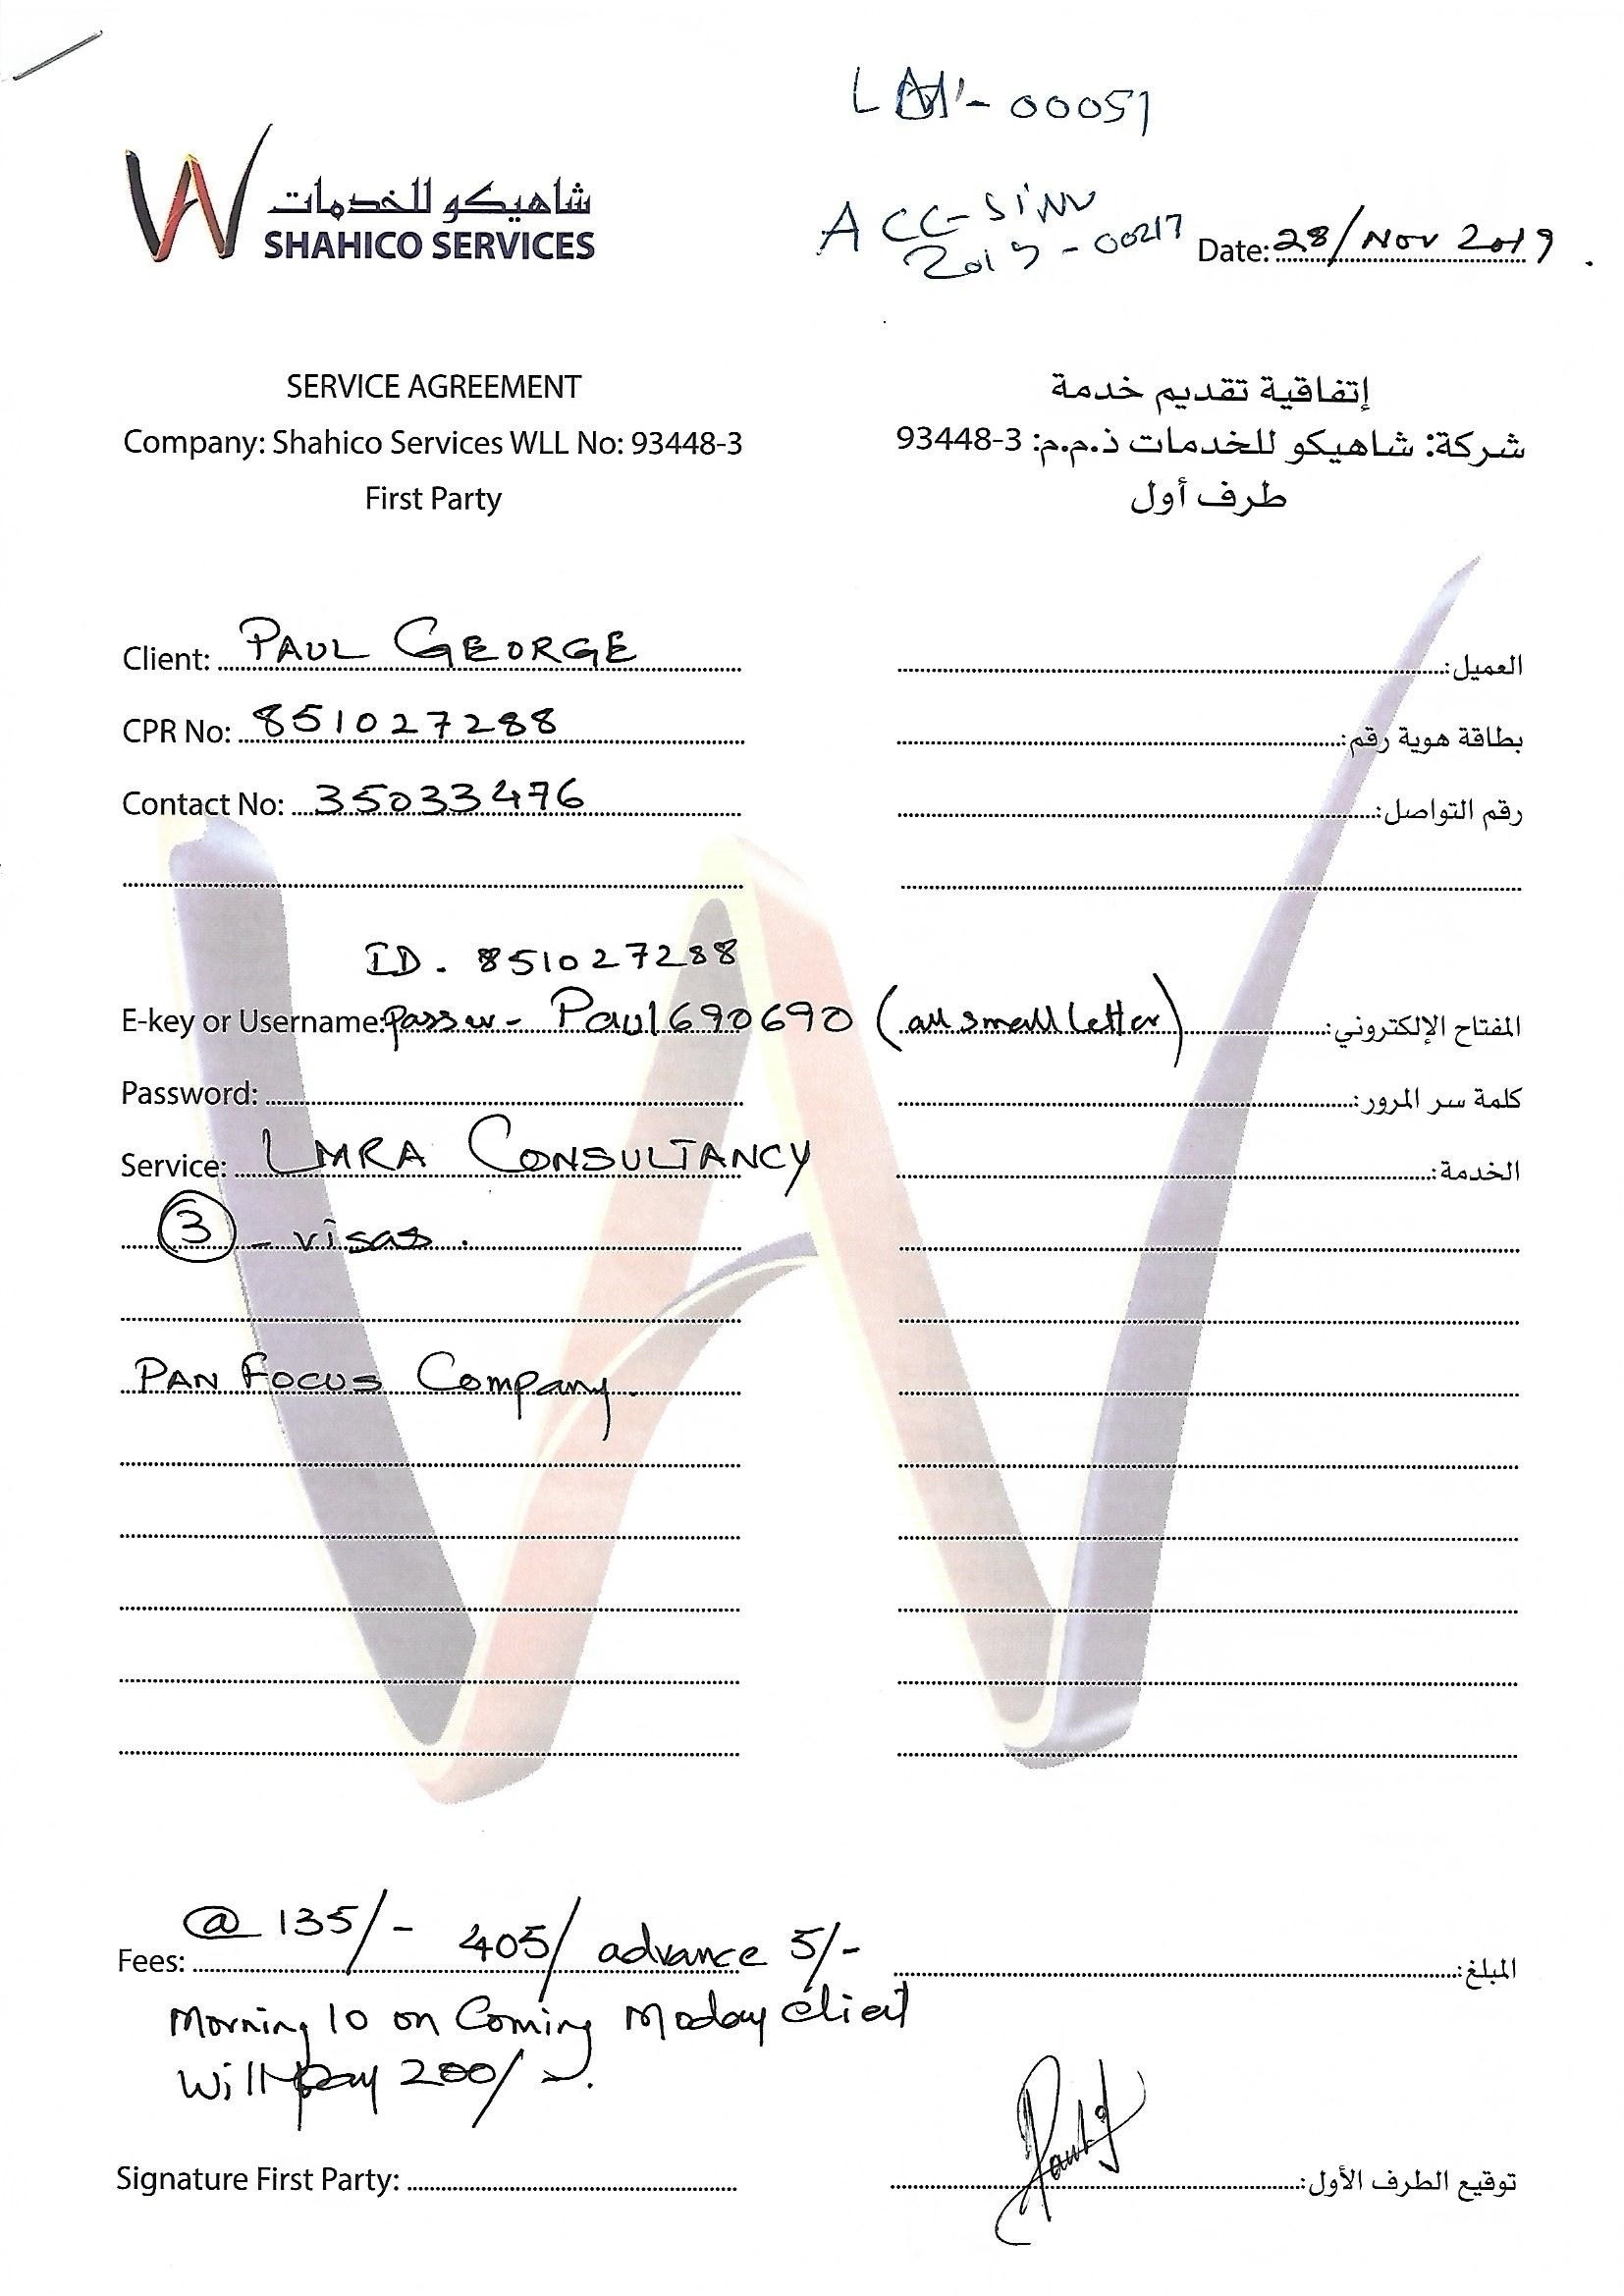 LAI'- 00051
شاهيكو للخدمات
SHAHICO SERVICES
ACC-SINV
2019-00217
Date: 28/Nov 2019.
SERVICE AGREEMENT
إتفاقية تقديم خدمة
Company: Shahico Services WLL No: 93448-3
شركة: شاهيكو للخدمات ذ.م.م: 3-93448
First Party
طرف أول
Client: PAUL GEORGE
العميل:
CPR No: 851027288
بطاقة هوية رقم:
Contact No: 35033476
رقم التواصل:
ID. 851027288
E-key or Username: passw- Paul690690 (all small letter)
المفتاح الإلكتروني:
Password:
كلمة سر المرور:
Service: LMRA CONSULTANCY
الخدمة:
3 - visas.
PAN FOCUS Company.
@ 135/- 405/ advance 5/-
Fees:
المبلغ:
Morning 10 on Coming Moday client
Will pay 200/-.
Signature First Party:
توقيع الطرف الأول: